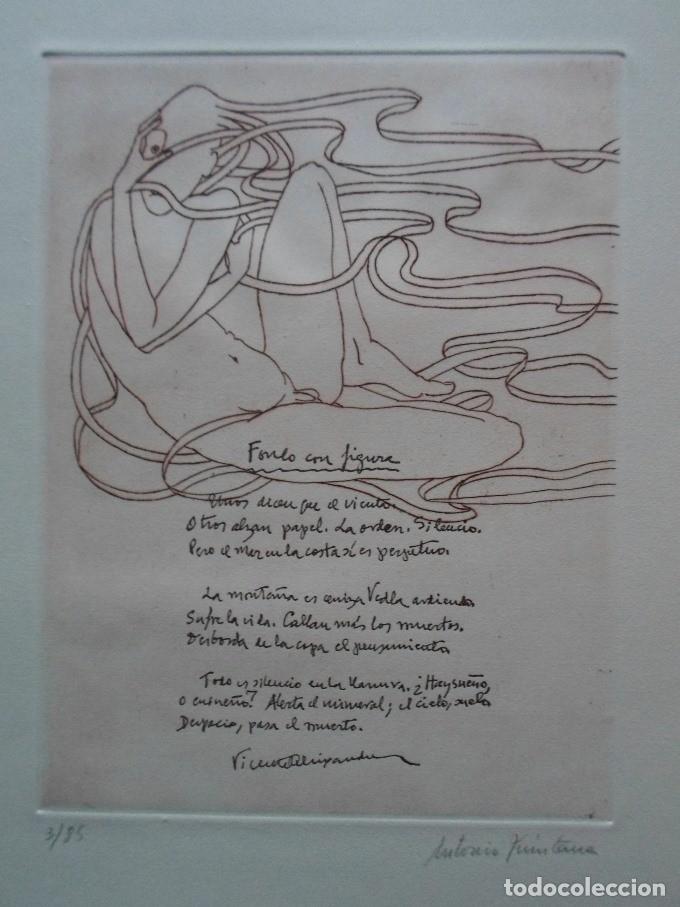 Fondo con figura
Unos dicen que el viento.
Otros alzan papel. La orden. Silencio.
Pero el mar en la costa sí es perpetuo.
La montaña es ceniza Vedla ardiendo
Sufre la vida. Callan más los muertos.
Desborda de la copa el pensamiento
Todo es silencio en la llanura. ¿Hay sueño,
o ensueño? Alerta el mineral; el cielo, suelo
Despacio, pasa el muerto.
Vicente Aleixandre
3/85
Antonio Quintana
todocoleccion